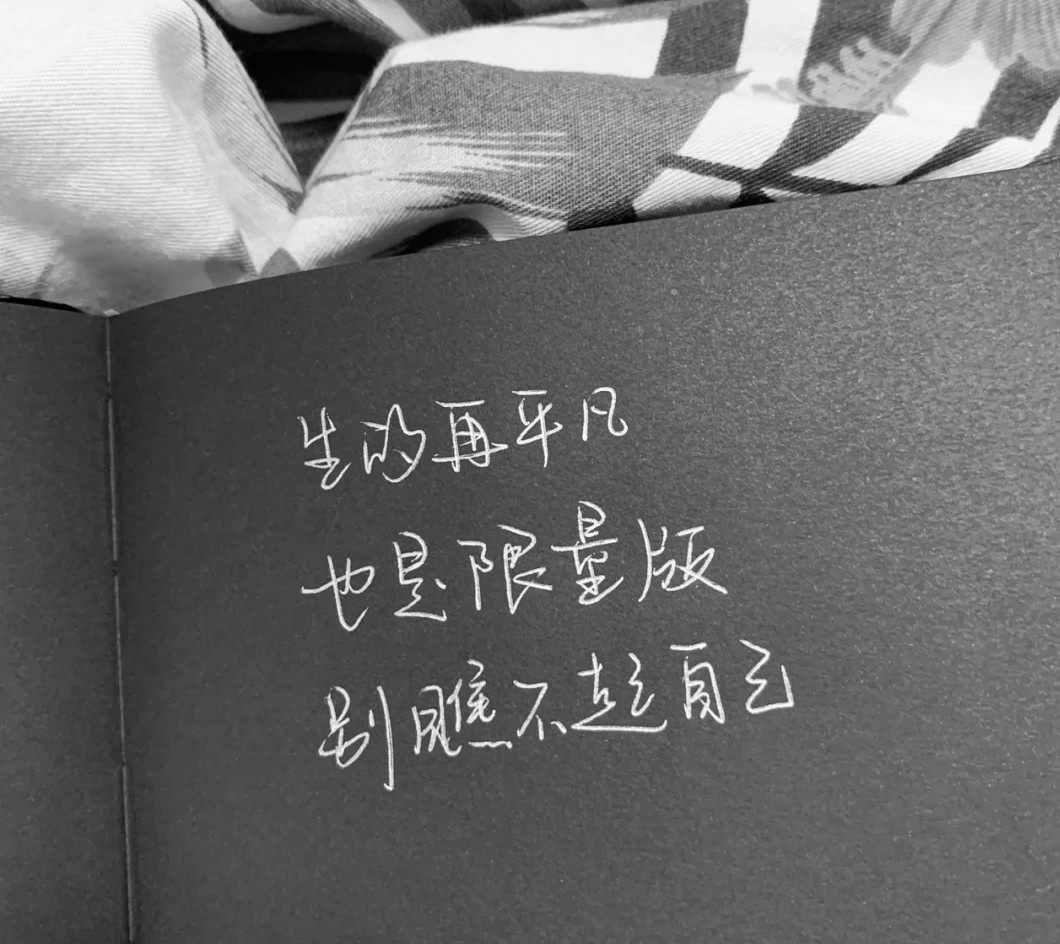 生的再平凡
也是限量版
别瞧不起自己